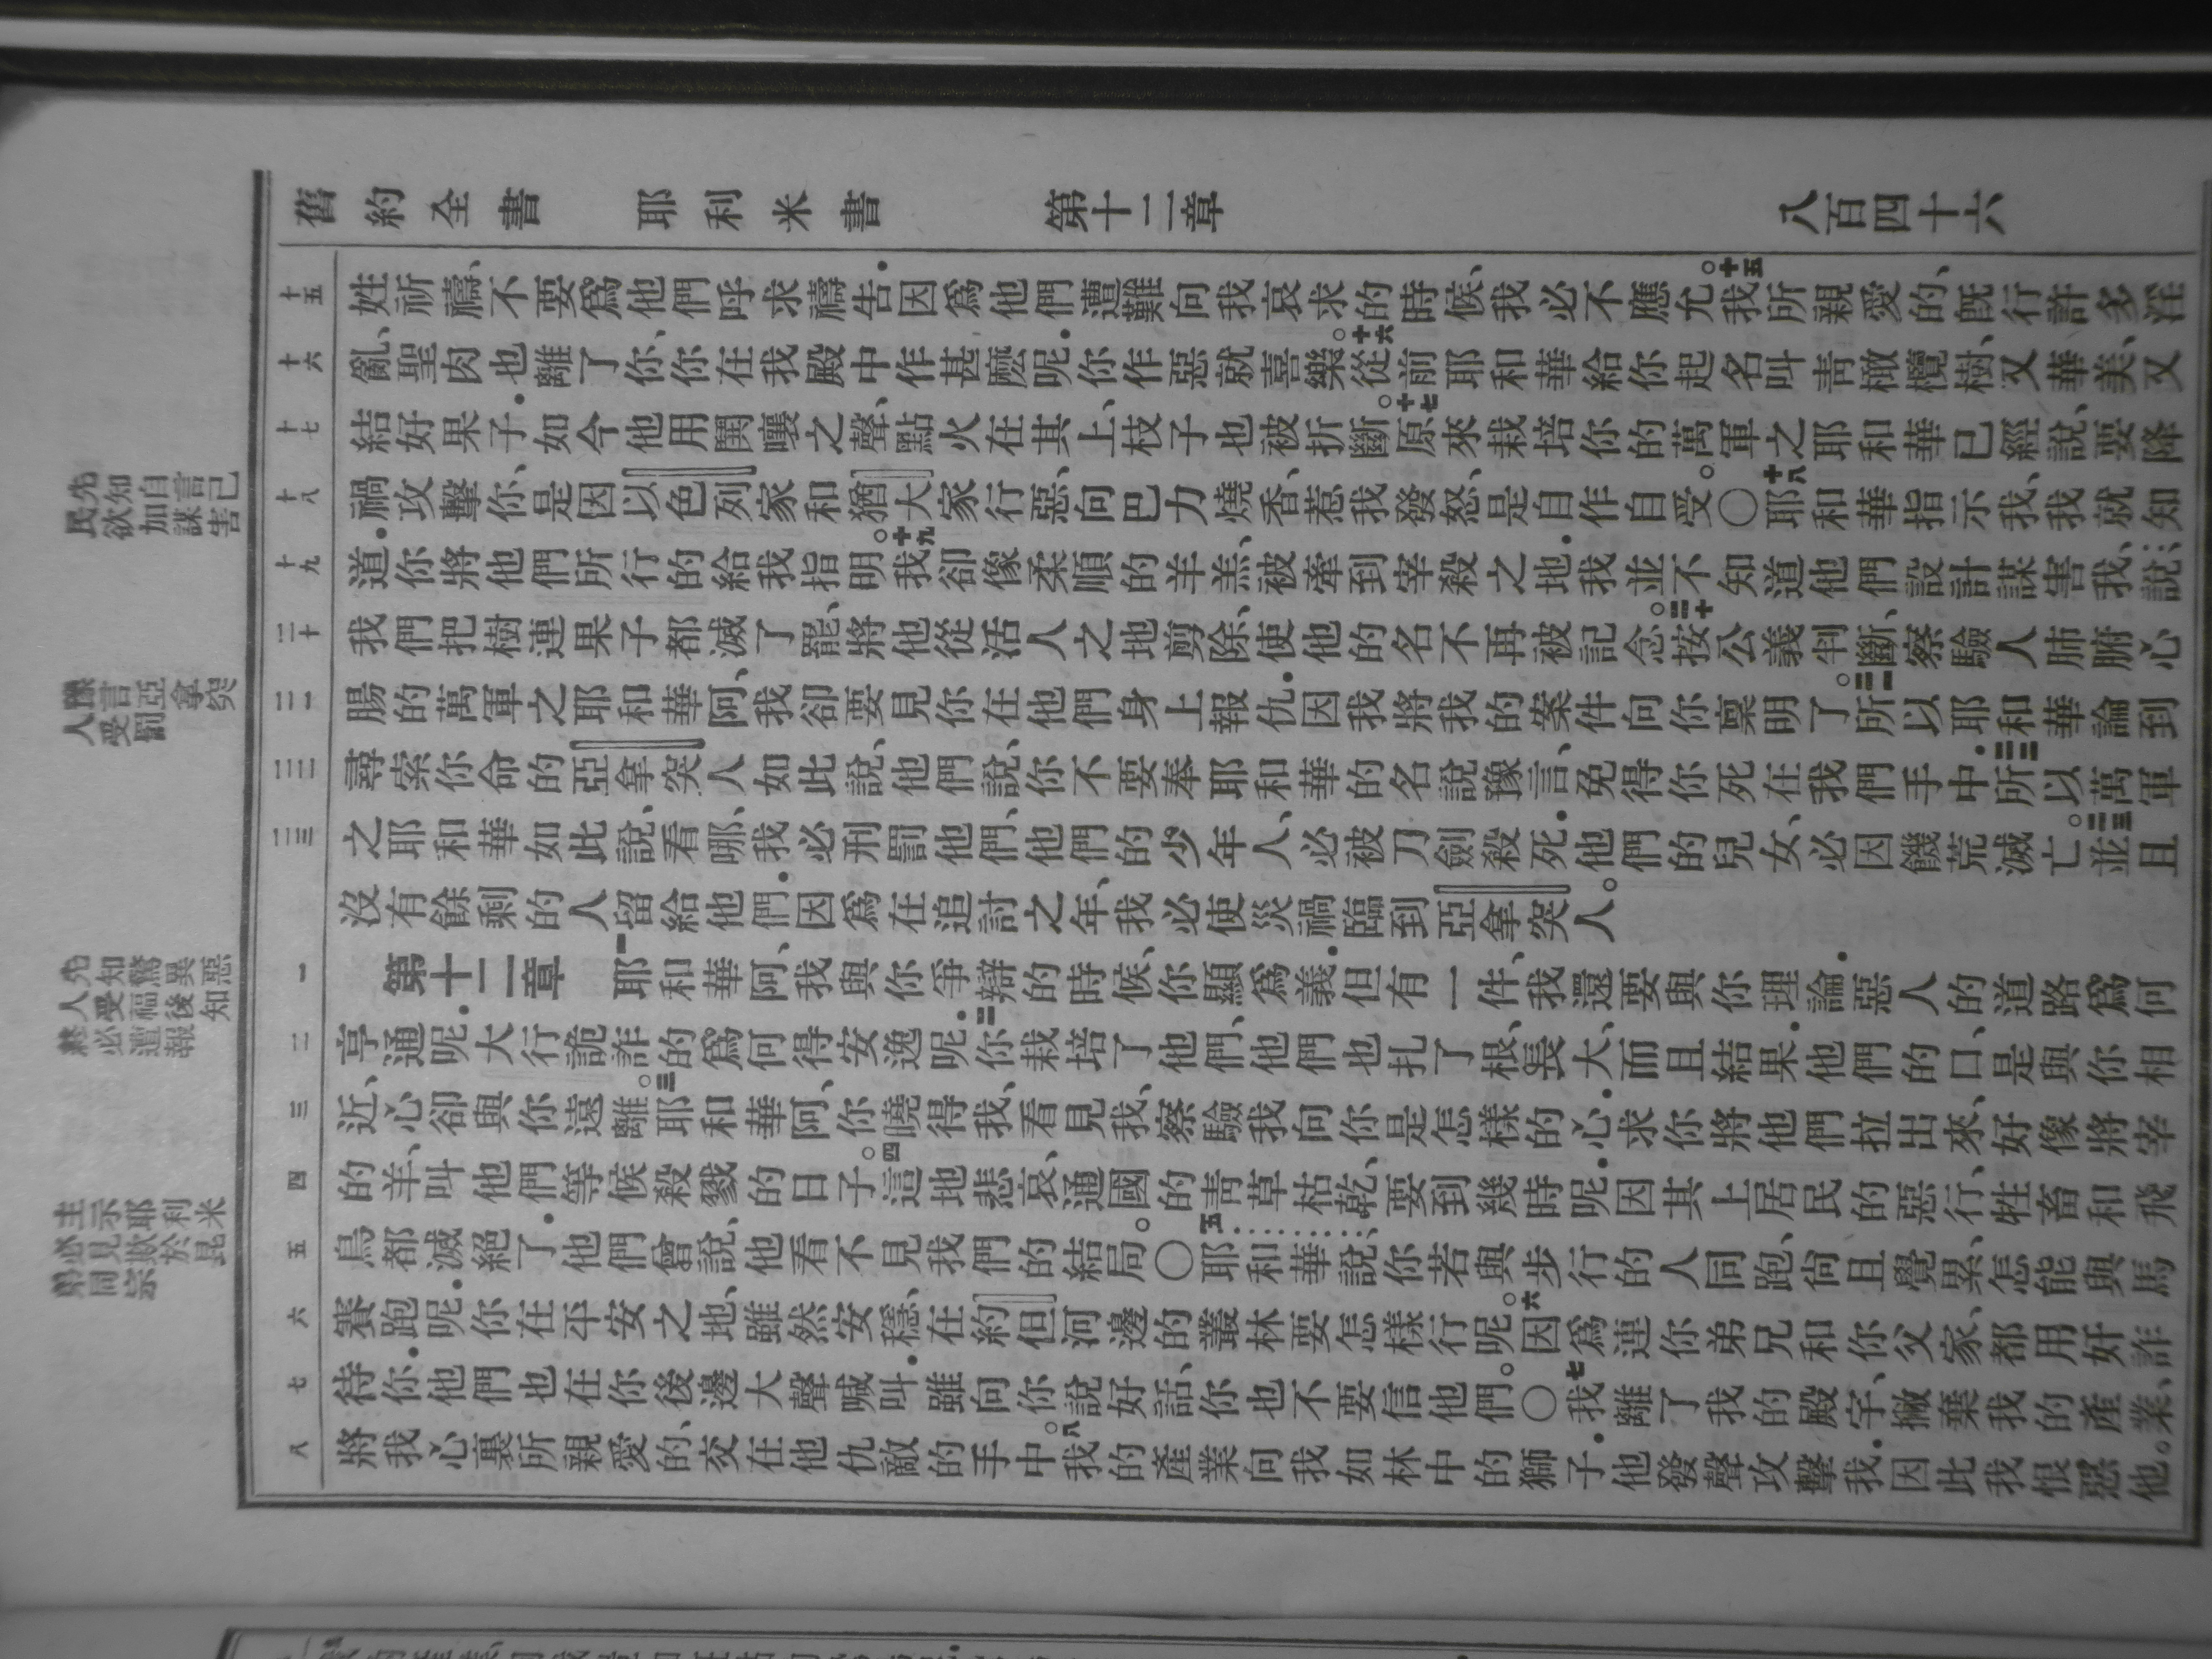 舊約全書 耶利米書 第十二章 八百四十六
十五 姓祈禱、不要爲他們呼求禱告．因爲他們遭難向我哀求的時候、我必不應允。十五我所親愛的、旣行許多淫
十六 亂、聖肉也離了你、你在我殿中作甚麽呢．你作惡就喜樂。十六從前耶和華給你起名叫靑橄欖樹、又華美、又
十七 結好果子．如今他用鬨嚷之聲、點火在其上、枝子也被折斷。十七原來栽培你的萬軍之耶和華已經說、要降
十八 禍攻擊你、是因以色列家和猶大家行惡、向巴力燒香、惹我發怒、是自作自受。〇十八耶和華指示我、我就知
十九 道．你將他們所行的給我指明。十九我卻像柔順的羊羔、被牽到宰殺之地．我並不知道他們設計謀害我、說：
二十 我們把樹連果子都滅了罷、將他從活人之地剪除、使他的名不再被記念。二十按公義判斷、察驗人肺腑心
二一 腸的萬軍之耶和華阿、我卻要見你在他們身上報仇．因我將我的案件向你禀明了。二一所以耶和華論到
二二 尋索你命的亞拿突人如此說、他們說、你不要奉耶和華的名說豫言、免得你死在我們手中．二二所以萬軍
二三 之耶和華如此說、看哪、我必刑罰他們、他們的少年人、必被刀劍殺死．他們的兒女、必因饑荒滅亡。二三並且
沒有餘剩的人留給他們．因爲在追討之年、我必使災禍臨到亞拿突人。
一 第十二章 一耶和華阿、我與你爭辯的時候、你顯爲義．但有一件、我還要與你理論．惡人的道路爲何
二 亨通呢．大行詭詐的爲何得安逸呢．二你栽培了他們、他們也扎了根、長大、而且結果．他們的口、是與你相
三 近、心卻與你遠離。三耶和華阿、你曉得我、看見我、察驗我向你是怎樣的心．求你將他們拉出來、好像將宰
四 的羊、叫他們等候殺戮的日子。四這地悲哀、通國的靑草枯乾、要到幾時呢．因其上居民的惡行、牲畜和飛
五 鳥都滅絕了．他們曾說、他看不見我們的結局。〇五耶和華說、你若與步行的人同跑、尙且覺累、怎能與馬
六 賽跑呢．你在平安之地、雖然安穩、在約但河邊的叢林要怎樣行呢。六因爲連你弟兄和你父家、都用奸詐
七 待你．他們也在你後邊大聲喊叫．雖向你說好話、你也不要信他們。〇七我離了我的殿宇、撇棄我的產業、
八 將我心裏所親愛的、交在他仇敵的手中。八我的產業向我如林中的獅子．他發聲攻擊我．因此我恨惡他。
先知自言己
民欲加謀害
豫言亞拿突
人受罰
先知驚異惡
人受福後知
終必遭報
主示耶利米
必見欺於昆
弟同宗